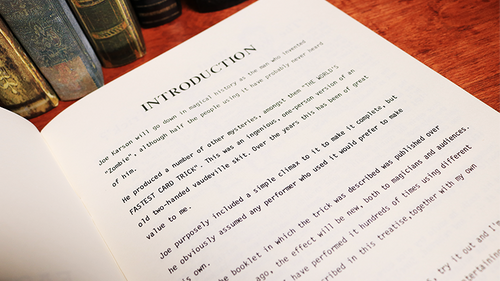 INTRODUCTION
Joe Karson will go down in magical history as the man who invented
"Zombie", although half the people using it have probably never heard
of him.
He produced a number of other mysteries, amongst them "THE WORLD'S
FASTEST CARD TRICK". This was an ingenious, one-person version of an
old two-handed vaudeville skit. Over the years this has been of great
value to me.
Joe purposely included a simple climax to it to make it complete, but
he obviously assumed any performer who used it would prefer to make
s own.
he booklet in which the trick was described was published over
ago, the effect will be new, both to magicians and audiences.
have performed it hundreds of times using different
cribed in this treatise,together with my own
try it out and I'